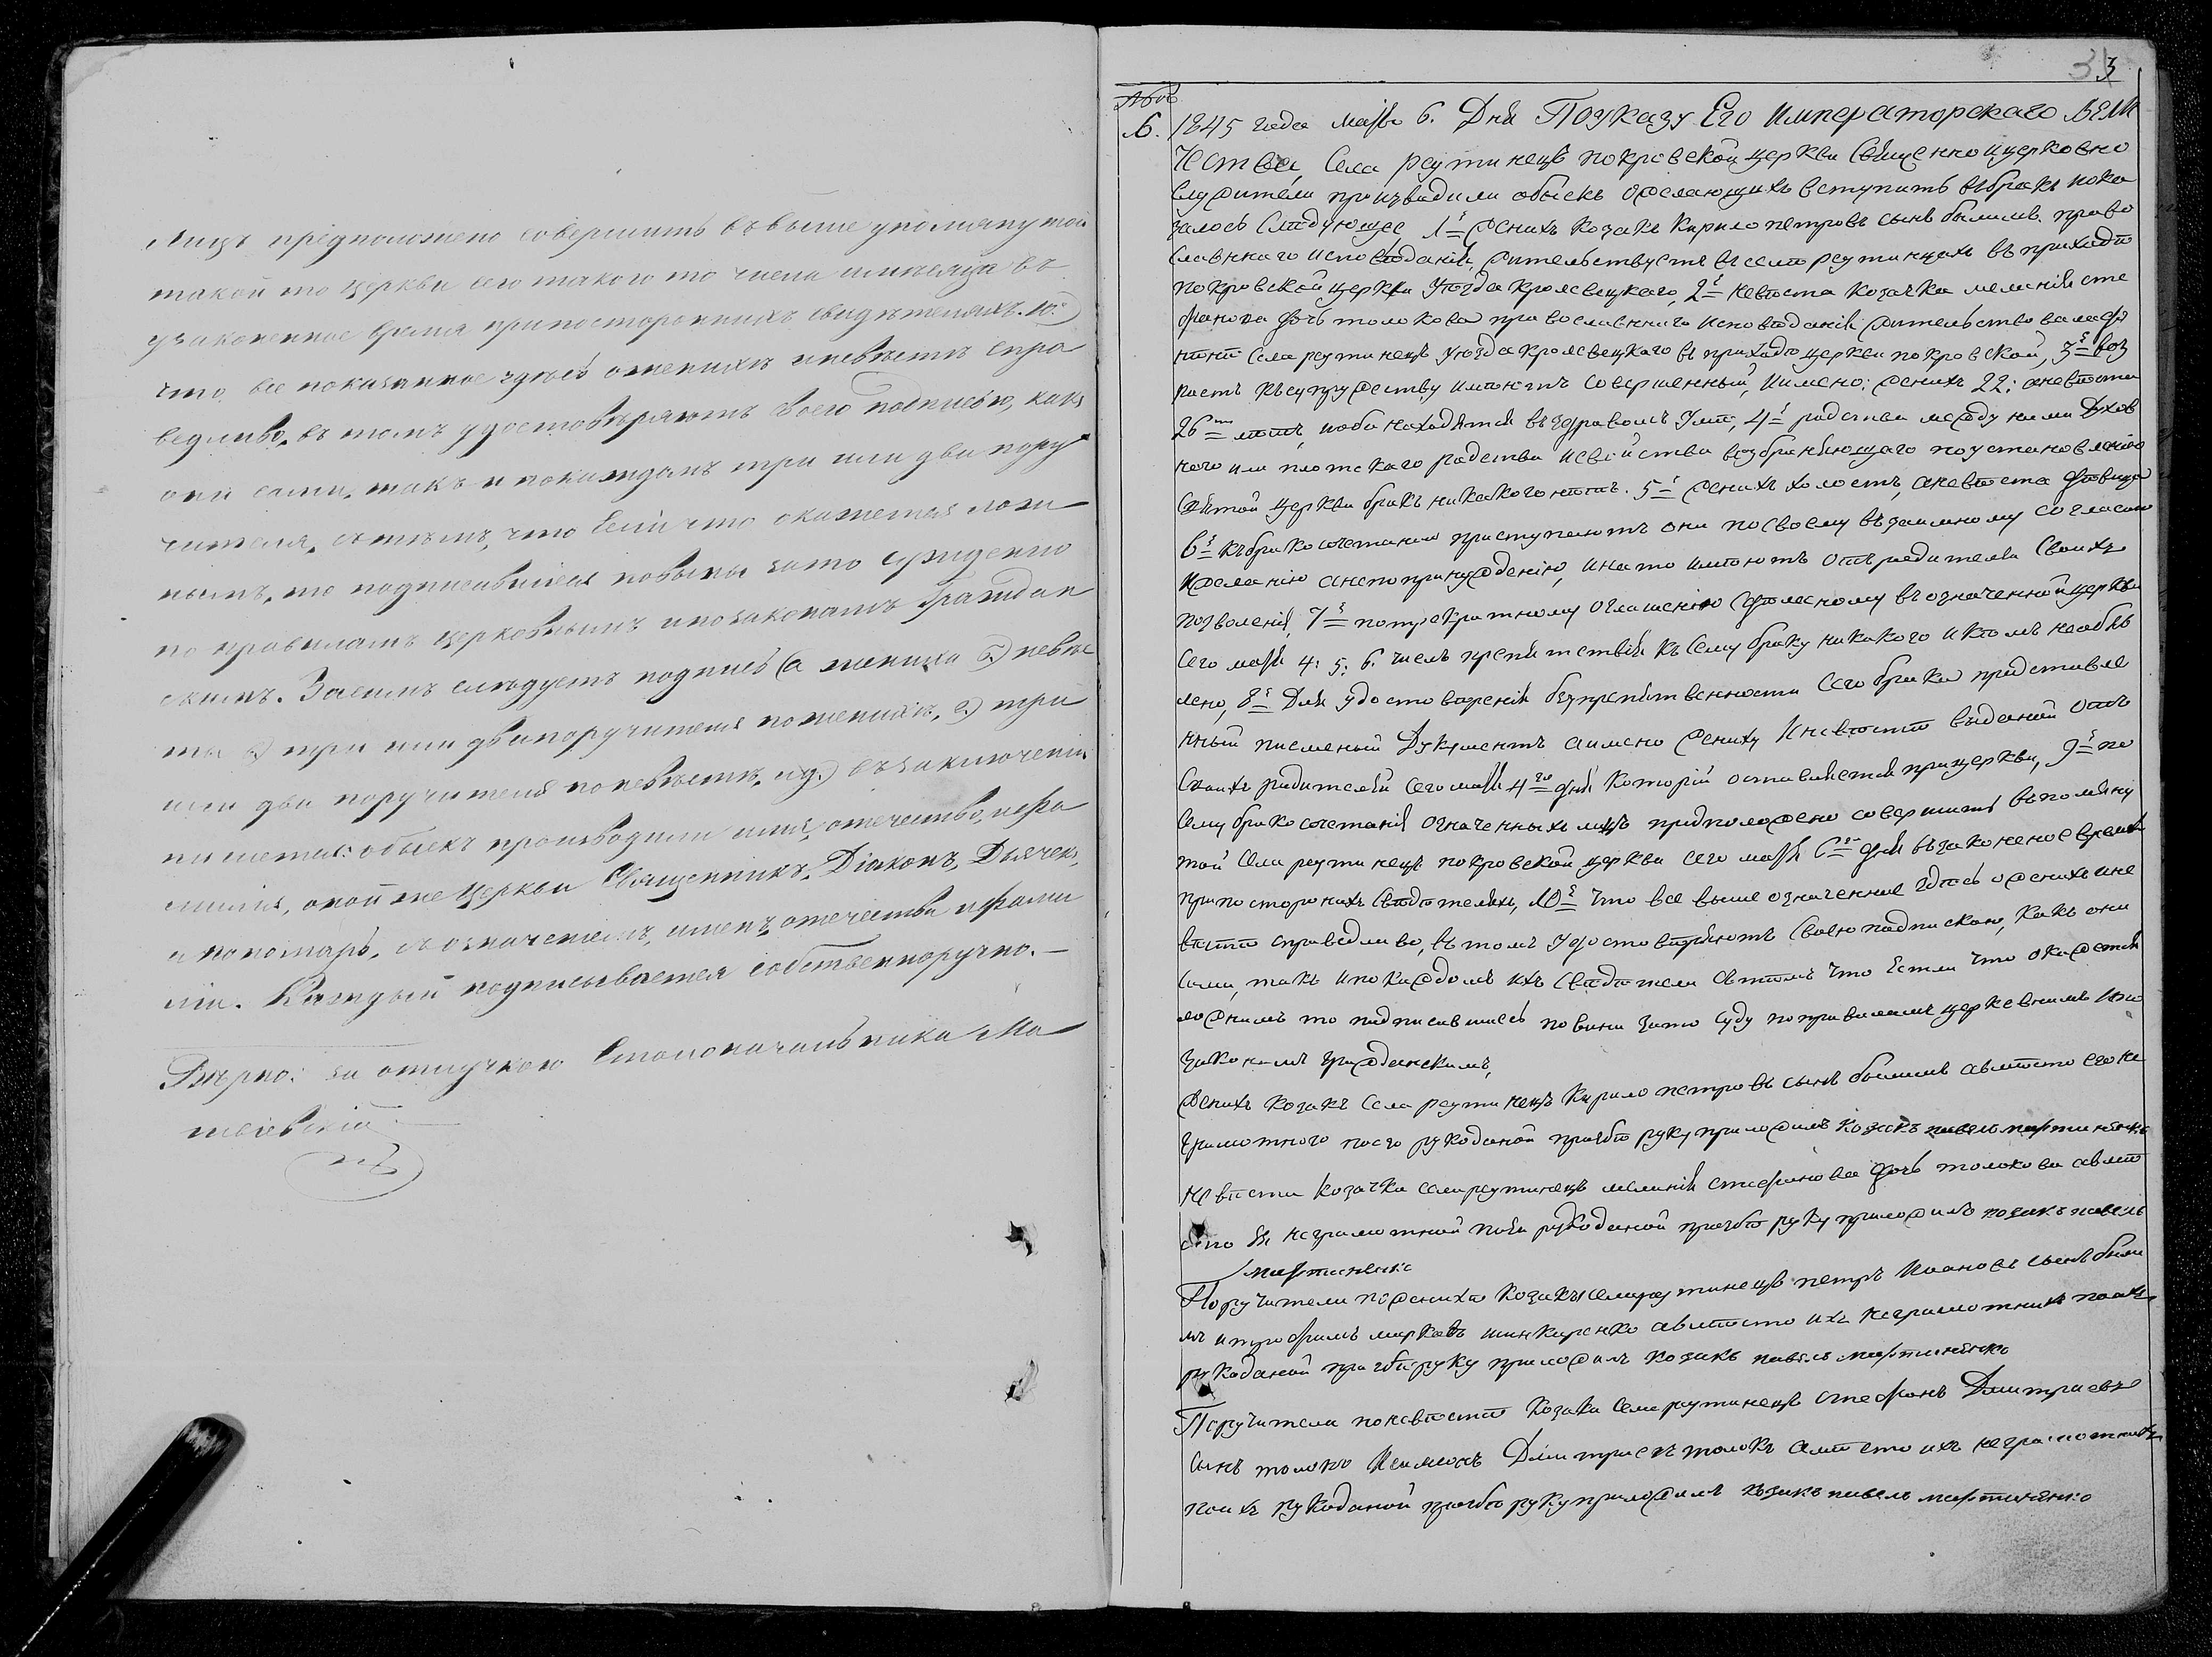 Лицъ предположено совершить въвыше упомянутой
такой то церкви сего такого то числа имесяца въ
узаконенное время припостороннихъ свидѣтеляхъ. 10.)
что все показанное здѣсь оженихѣ иневѣстѣ спра
ведливо, въ томъ удостовѣряютъ своею подписью, какъ
они сами, такъ и покаждомъ три или два пору
чителя, стѣмъ, что Если что окажется лож
нымъ, то подписавшіеся повинны зато сужденію
по правиламъ церковнымъ ипозаконамъ Граждан
скимъ. Засимъ слѣдуетъ подпись (а жениха б.) невѣс
ты в) три или двапоручителя поженихѣ, г.) три
или два поручителя поневѣстѣ, ид.) въ заключеніи
пишется: обыскъ производили имя, отечество, ифа
милія, оной же церкви Священникъ, Діаконъ, Дьячекъ
и пономарь, съ означеніемъ, имени, отечества ифами
ліи. Каждый подписывается собственноручно. —
Вѣрно: за отлучкою Столоначальника Ма
3
№6й
6. 1845 года маия 6. Дня Поуказу Его Императорскаго ВЕЛИ
чества, Села реутинецъ покровской церкви Священноицерковно
служители произвадили обыскъ ожелающихъ вступить въбракъ ипока
залось Слѣдующее 1е женихъ козакъ Кирило петровъ сынъ былимъ право
славнаго исповѣданія, жительствуетъ въ селѣ реутинцахъ въ приходѣ
покровской церкви Уѣзда кролевецкаго, 2е невѣста козачка меланія сте
фанова дочь толокова православннаго исповѣданія жительствовала до
нинѣ села реутинецъ уѣзда кролевецкаго въ приходѣ церкви покровской, 3е воз
растъ къ супружеству имѣютъ совершенный, имено: женихъ 22: аневѣста
26 лѣтъ, иоба находятся въ здравомъ Умѣ, 4е родства между ними Духов
ного или плотскаго родства исвойства возбраняющаго поустановленію
святой церкви бракъ никакого нѣтъ. 5е женихъ холостъ, аневѣста вдовица
6е къбракосочетанію приступаютъ они посвоему взаимному согласию
ижеланію анепопринужденію, инато имѣютъ отъ родителей своихъ
позволенія, 7е потрекратному оглашенію здѣланому въ означенной церкви
сего маия 4: 5: 6. числъ препятствія къ сему браку никакого иктомъ необяв
лено, 8е Для удостоверенія безпрепятственности сего брака представле
нный писменый Документъ аимено жениху Иневѣстѣ выданой отъ
своихъ родителей сего маия 4го дня которій оставляется прицеркви, 9е по
сему бракосочетанія означенныхъ лицъ предположено совершить въпомяну
той села реутинецъ покровской церкви сего маия 6го дня въ законеное время
припосторонихъ свѣдѣтеляхъ, 10е что все выше означенное здѣсь оженихѣ ине
вѣстѣ справедливо, въ томъ удостовѣряютъ своею подпискою, какъ они
сами, такъ ипокаждомъ ихъ свѣдѣтели свтѣмъ что Естли что окажется
ложнимъ то подписавшиесь повини зато суду поправиламъ церковнимъ ипо
законамъ гражданскимъ,
женихъ козакъ села реутинецъ Кирило петровъ сынъ былимъ авмѣсто его не
грамотного поего рукоданой прозбѣ руку приложилъ козакъ павелъ мартиненко
Невѣста козачка села реутинецъ меланія стефанова дочь толокова авмѣ
сто Ея неграмотной поЕя рукоданой прозбѣ руку приложилъ козакъ павелъ
мартиненко
Поручители поженихѣ козаки села реутинецъ петръ Ивановъ сынъ были
мъ итрофимъ марковъ шинкаренко авмѣсто ихъ неграмотнихъ поихъ
рукоданой прозбѣ руку приложилъ козакъ павелъ мартиненко
Поручители поневѣстѣ козаки села реутинецъ стефанъ Дмитриевъ
сынъ толокъ Исимионъ Дмитриевъ толокъ авмѣсто ихъ неграмотнихъ
поихъ рукоданой прозбѣ руку приложилъ козакъ павелъ мартиненко